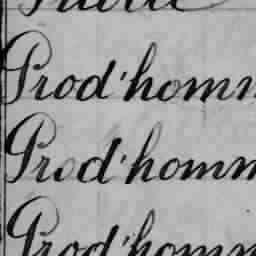 Prod'homm
Prod'homm
Prod'homm